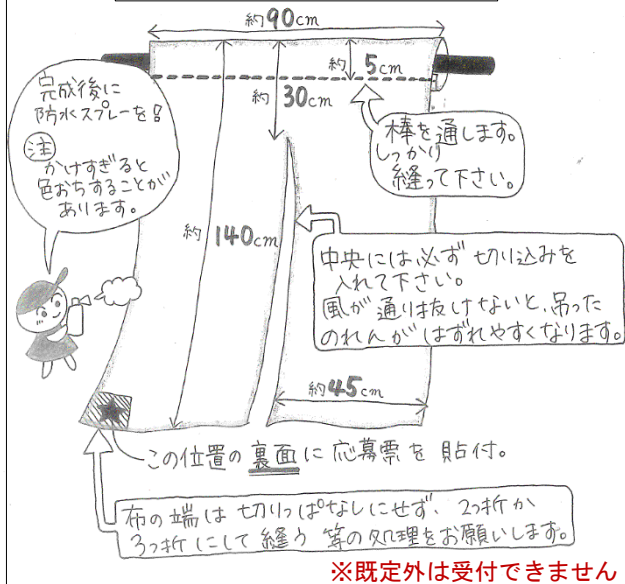 約90cm
約5cm
約30cm
完成後に
防水スプレーを!
注
かけすぎると
色おちすることが
あります。
棒を通します。
しっかり
縫って下さい。
約140cm
中央には必ず切り込みを
入れて下さい。
風が通り抜けないと、吊った
のれんがはずれやすくなります。
約45cm
この位置の裏面に応募票を貼付。
布の端は切りっぱなしにせず、2つ折か
3つ折にして縫う等の処理をお願いします。
※既定外は受付できません